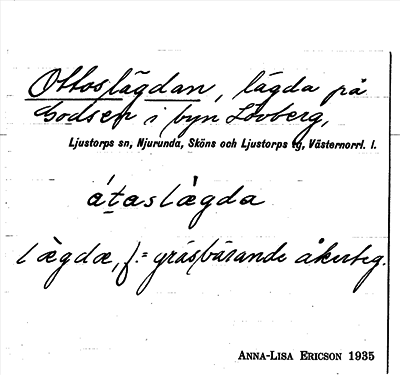 Ottoslägdan, lägda på
Godsen i byn Lövberg,
Ljustorps sn, Njurunda, Sköns och Ljustorps tg, Västernorrl. l.
átaslàgda
lægdæ, f. = gräsbärande åkerteg.
ANNA-LISA ERICSON 1935